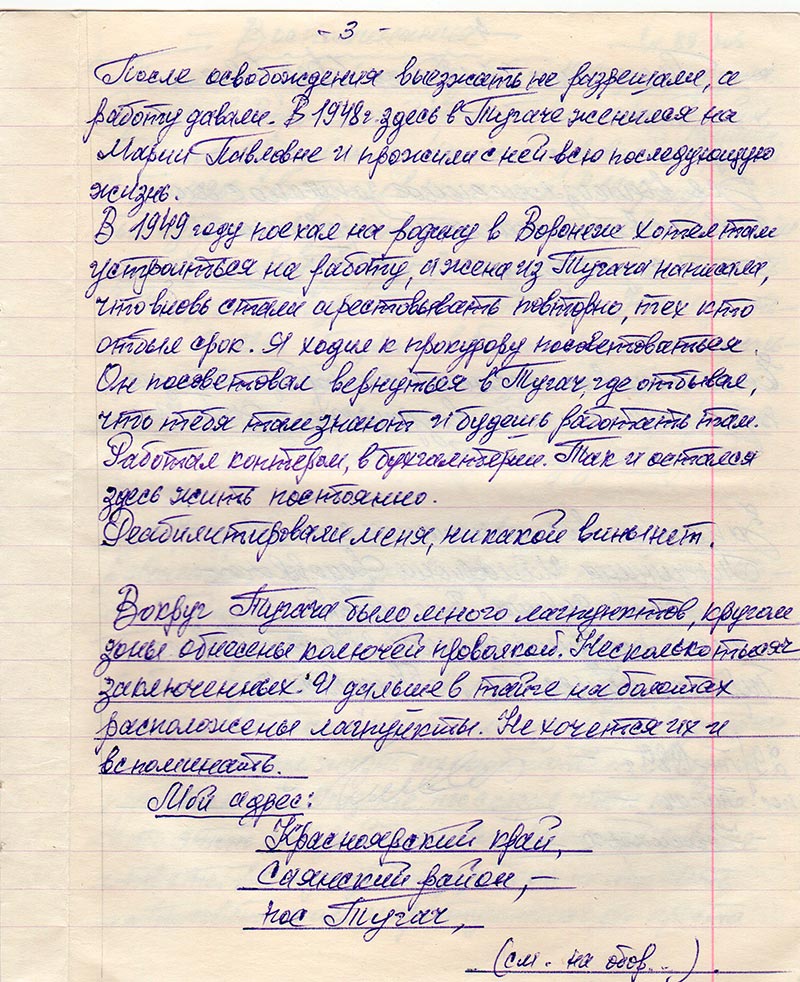 - 3 -
После освобождения выезжать не разрешали, а
работу давали. В 1948г. здесь в Тугаче женился на
Марии Павловне и прожили с ней всю последующую
жизнь.
В 1949 году поехал на родину в Воронеж хотел там
устроиться на работу, а жена из Тугача написала,
что вновь стали арестовывать повторно, тех кто
отбыл срок. Я ходил к прокурору посоветоваться.
Он посоветовал вернуться в Тугач, где отбывал,
что тебя там знают и будешь работать там.
Работал контером, в бухгалтерии. Так и остался
здесь жить постоянно.
Реабилитировали меня, никакой вины нет.
Вокруг Тугача было много лагпунктов, кругом
зоны обнесены колючей проволкой. Несколько тысяч
заключенных. И дальше в тайге на болотах
расположены лагпункты. Не хочется их и
вспоминать.
Мой адрес:
Красноярский край,
Саянский район, -
пос Тугач,
(см. на обор...)